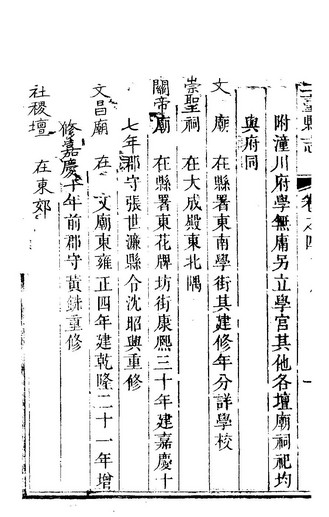 三臺縣志 卷之四 一
附潼川府學無庸另立學宮其他各壇廟祠祀均
與府同
文 廟 在縣署東南學街其建修年分詳學校
崇聖祠 在大成殿東北隅
關帝廟 在縣署東花牌坊街康熙三十年建嘉慶十
七年郡守張世濂縣令沈昭興重修
文昌廟 在 文廟東雍正四年建乾隆二十一年增
修嘉慶十年前郡守黃銑重修
社稷壇 在東郊